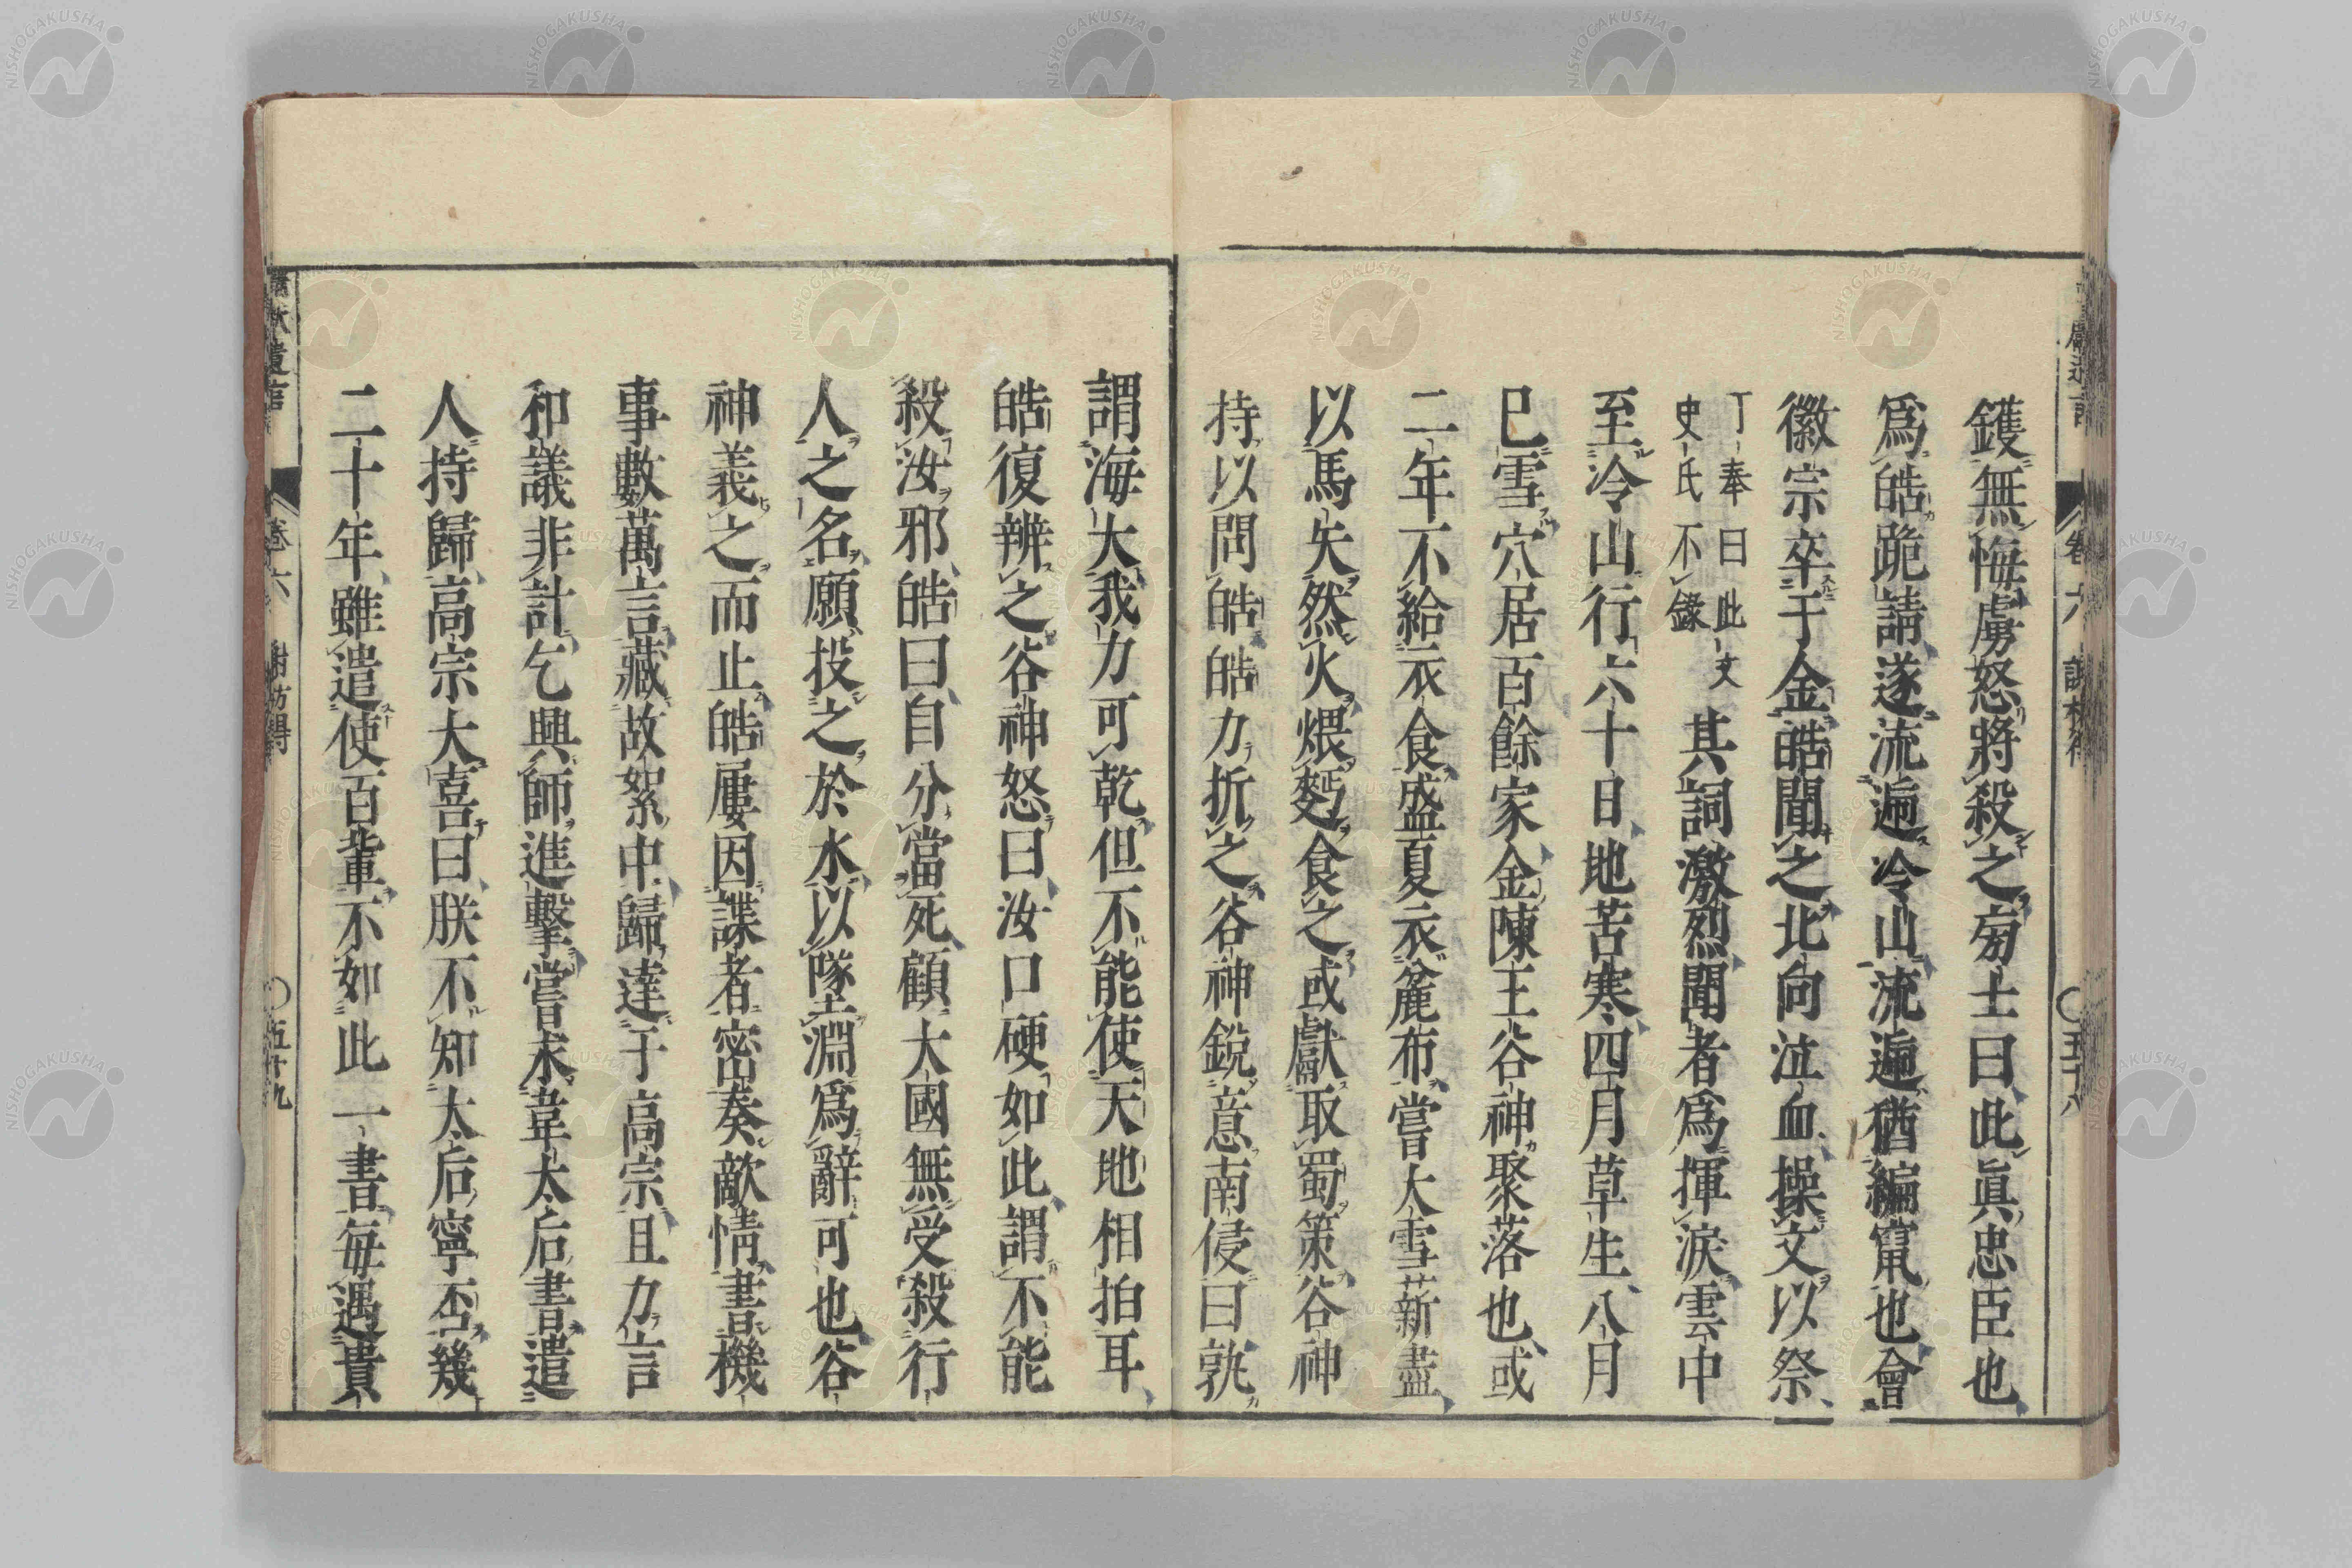 鑊無悔虜怒將殺之旁士曰此眞忠臣也
爲皓跪請遂流遞冷山流遞猶編竄也會
徽宗卒于金皓聞之北向泣血操文以祭
丁奉曰此文
史氏不錄
其詞激烈聞者爲揮淚雲中
至冷山行六十日地苦寒四月草生八月
已雪穴居百餘家金陳王谷神聚落也或
二年不給衣食盛夏衣麄布嘗大雪薪盡
以馬矢然火煨麪食之或獻取蜀策谷神
持以問皓皓力折之谷神鋭意南侵曰孰
謂海大我力可乾但不能使天地相拍耳
皓復辨之谷神怒曰汝口硬如此謂不能
殺汝邪皓曰自分當死顧大國無受殺行
人之名願投之於水以墜淵爲辭可也谷
神義之而止皓屢因諜者密奏敵情書機
事數萬言藏故絮中歸達于高宗且力言
和議非計乞興師進擊嘗求韋太后書遣
人持歸高宗大喜曰朕不知太后寧否幾
二十年雖遣使百輩不如此一書毎遇貴
遺言
卷六
謝枋得
五十九
卷六
五十八
NISHOGAKUSHA